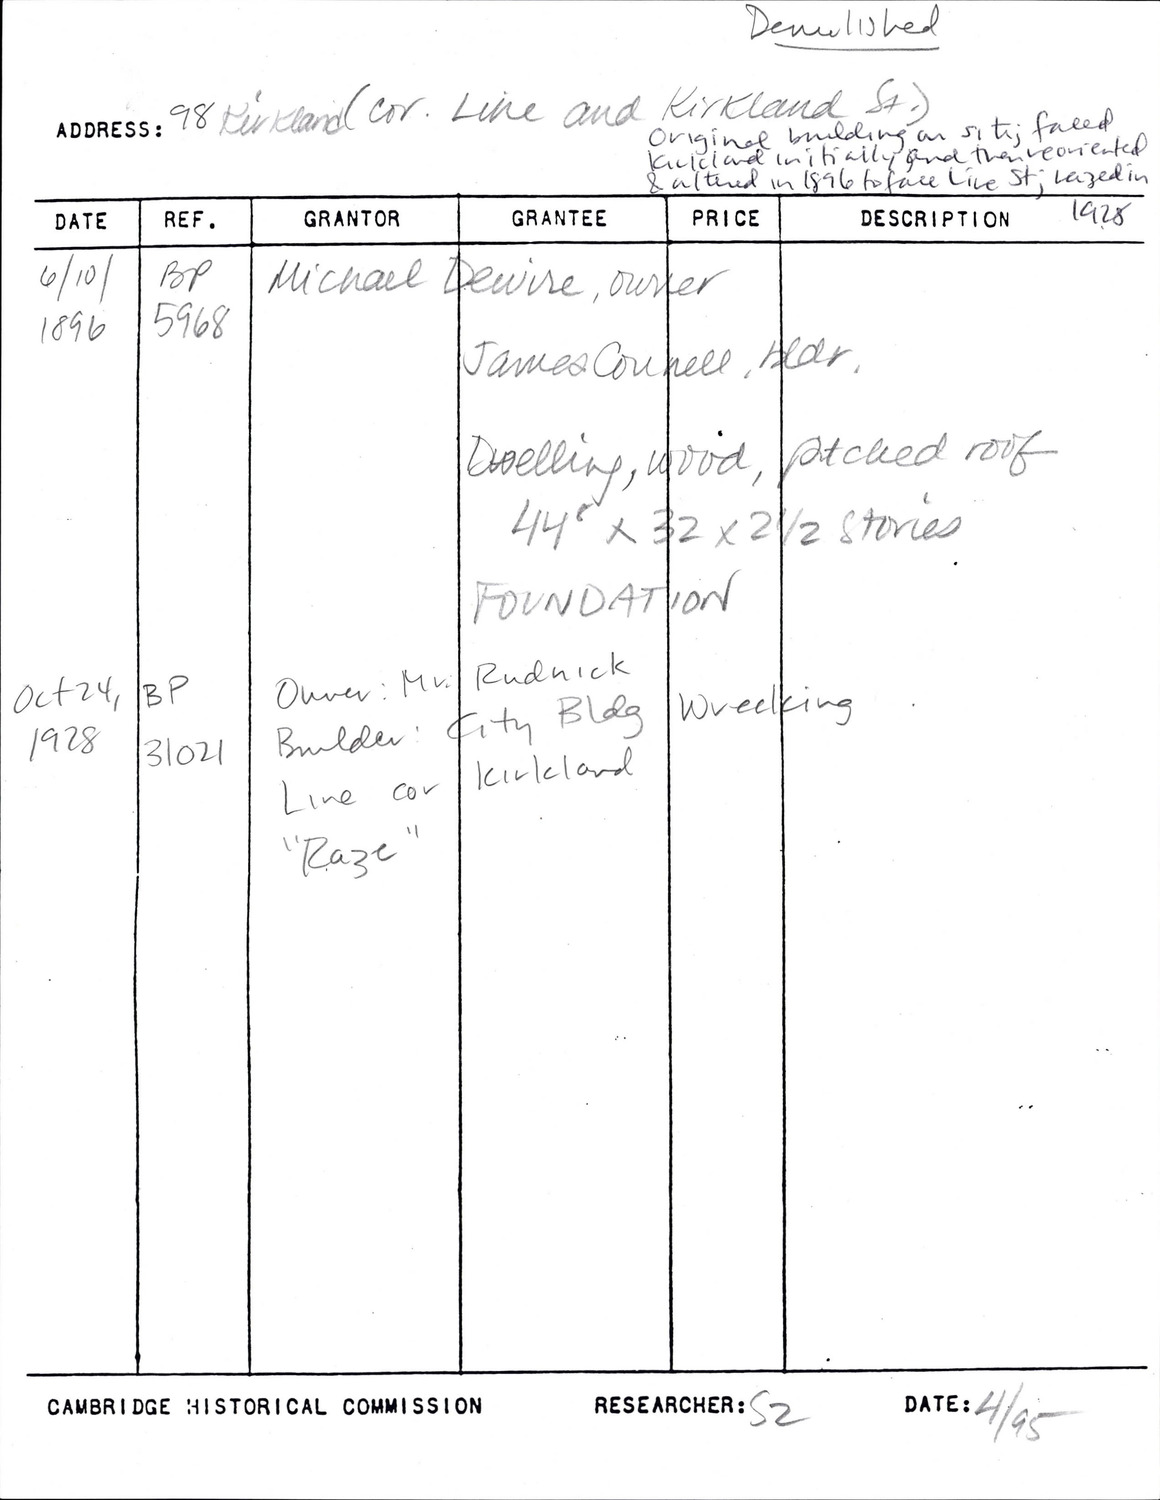 Demolished
ADDRESS: 98 Kirkland (cor. Line and Kirkland St.)
Original building on site; faced
Kirkland initially and then reoriented
& altered in 1896 to face Line St; razed in
1928
DATE REF. GRANTOR GRANTEE PRICE DESCRIPTION
6/10/ BP Michael Dewire, owner
1896 5968
James Connell, bldr.
Dwelling, wood, pitched roof
44' x 32 x 2 1/2 stories
FOUNDATION
Oct 24, BP Owner: Mr. Rudnick
1928 31021 Builder: City Bldg Wrecking
Line cor Kirkland
"Raze"
CAMBRIDGE HISTORICAL COMMISSION RESEARCHER: SZ DATE: 4/95